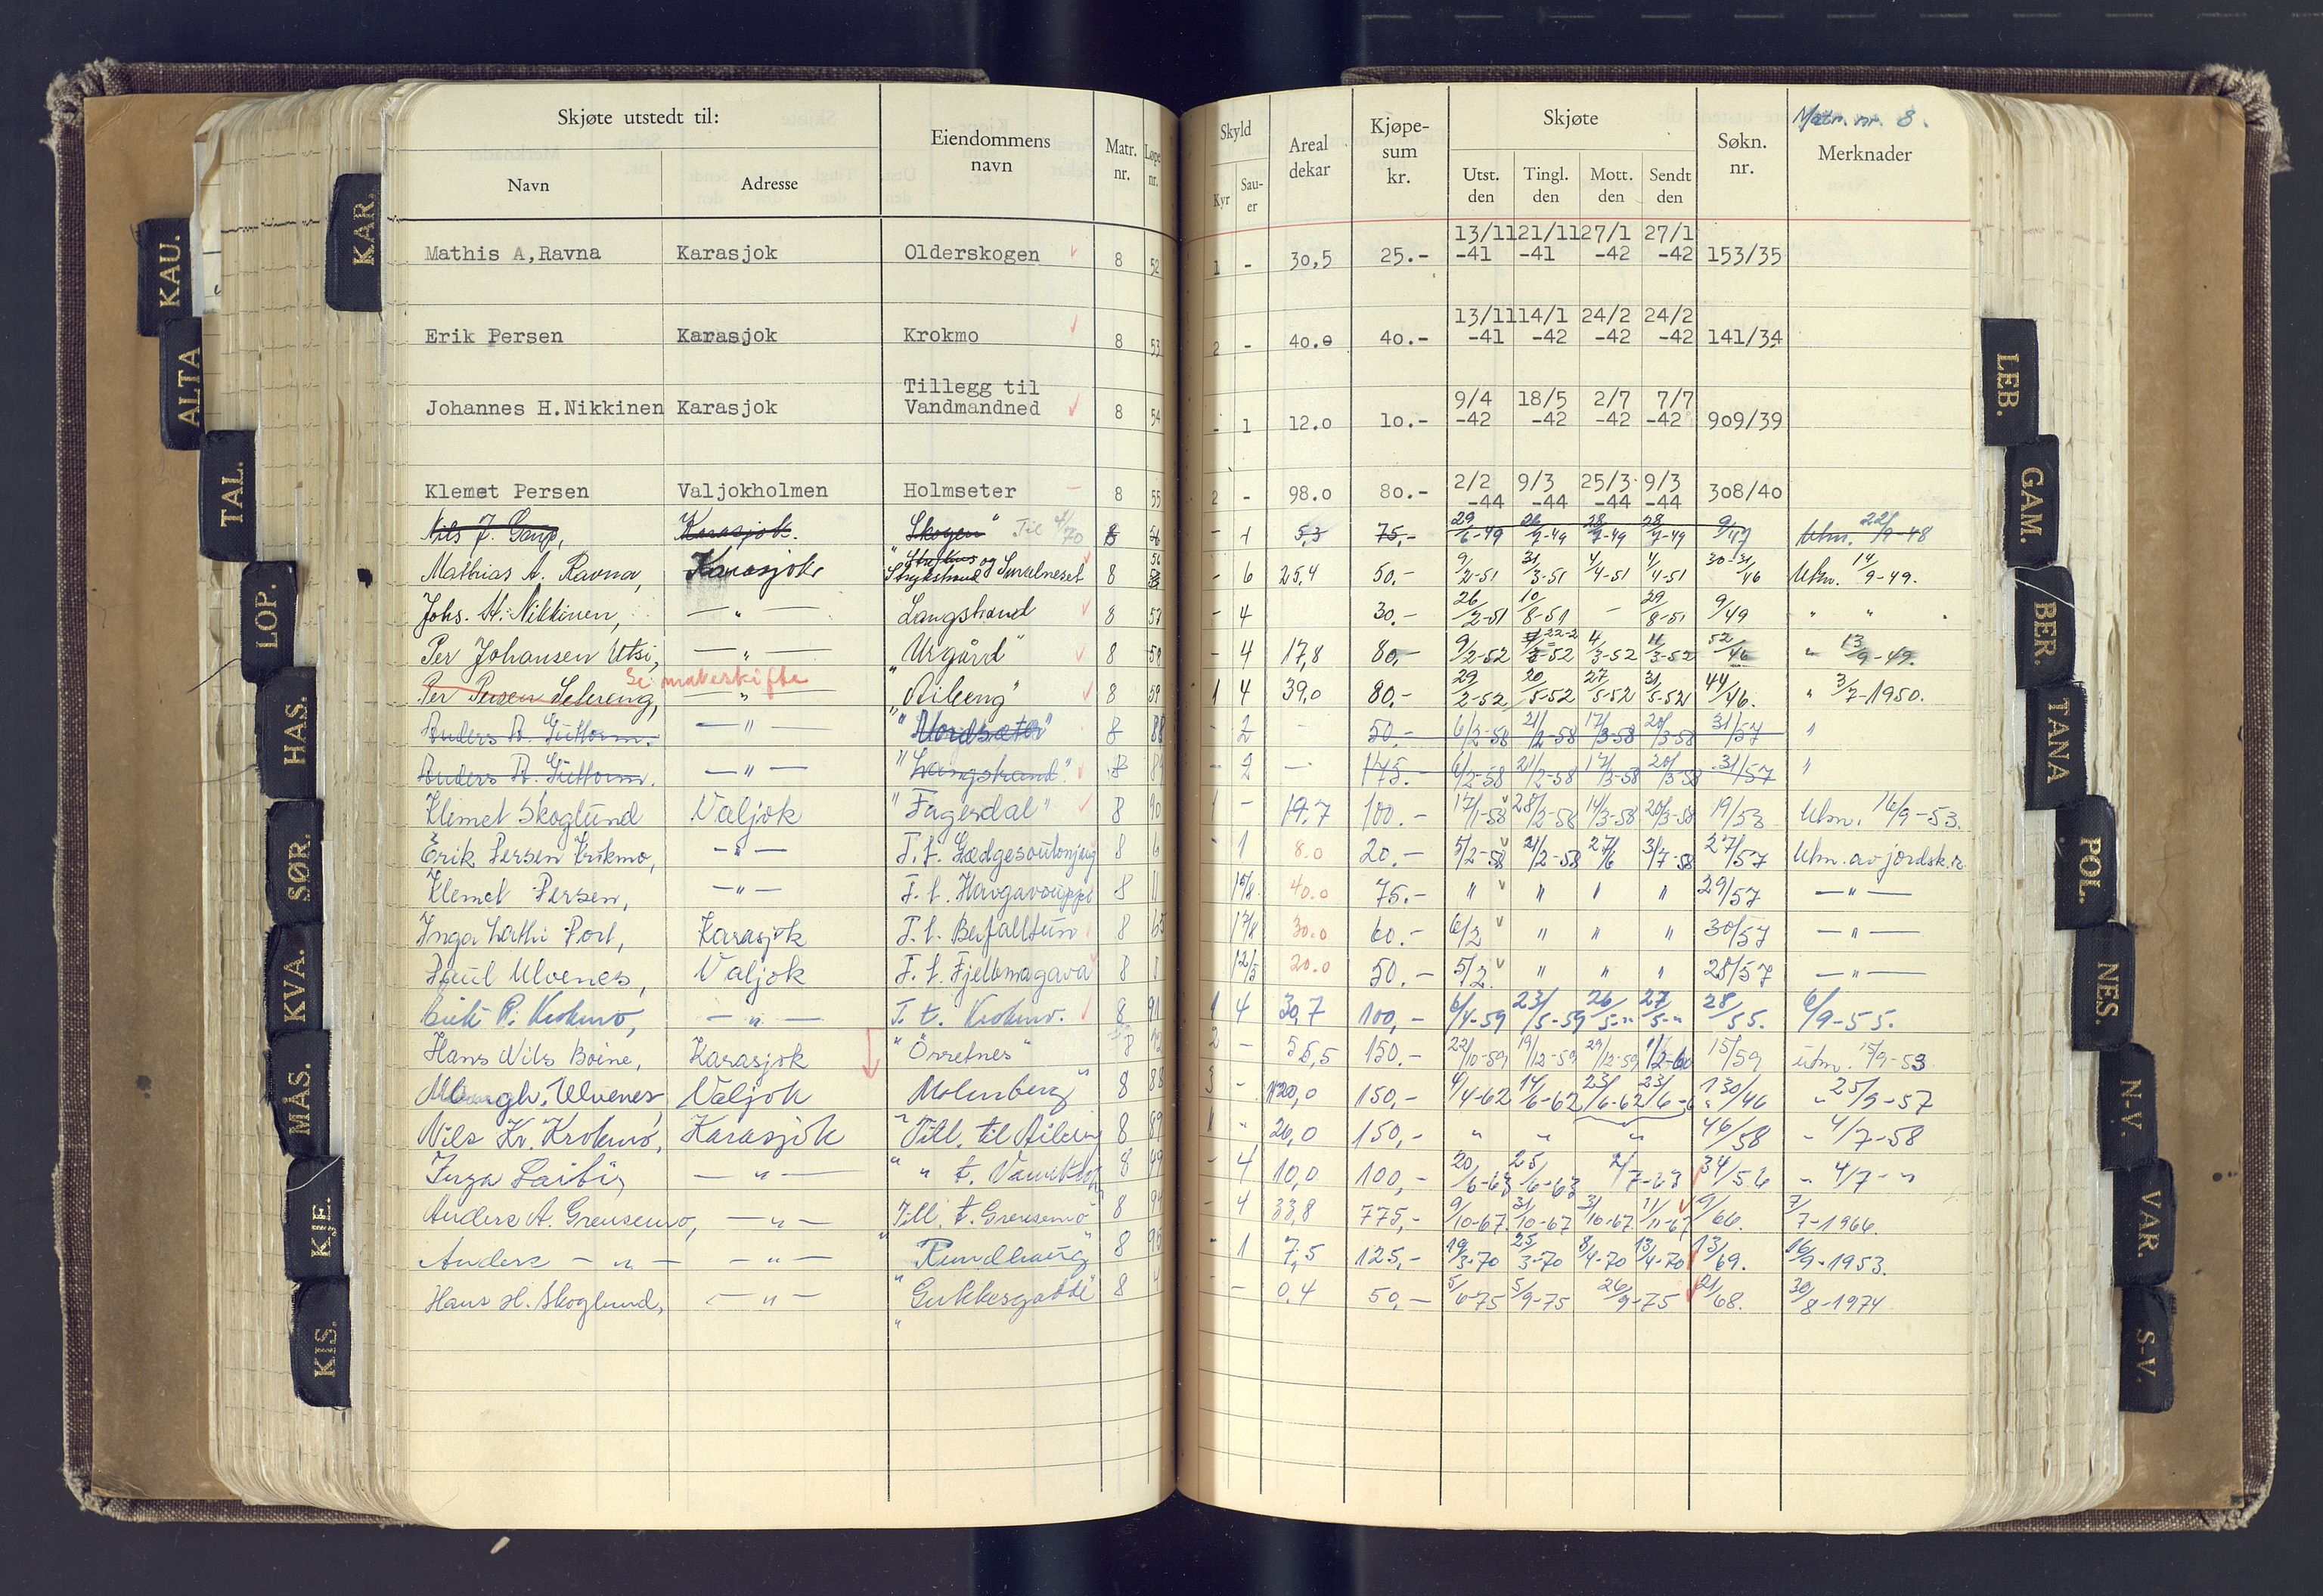 KAU.
ALTA
TAL.
LOP.
HAS.
SØR.
KVA.
MÅS.
KJE.
KIS.
KAR.
Skjøte utstedt til:
Navn Adresse Eiendommens navn Matr. nr. Løpe nr.
Skyld Kyr Sau-er Areal dekar Kjøpe-sum kr. Skjøte Utst. den Tingl. den Mott. den Sendt den Søkn. nr. Matr. nr. 8. Merknader
Mathis A,Ravna Karasjok Olderskogen 8 52 1 - 30,5 25.- 13/11 -41 21/11 -41 27/1 -42 27/1 -42 153/35
Erik Persen Karasjok Krokmo 8 53 2 - 40.0 40.- 13/11 -41 14/1 -42 24/2 -42 24/2 -42 141/34
Johannes H.Nikkinen Karasjok Tillegg til Vandmandned 8 54 - 1 12.0 10.- 9/4 -42 18/5 -42 2/7 -42 7/7 -42 909/39
Klemet Persen Valjokholmen Holmseter 8 55 2 - 98.0 80.- 2/2 -44 9/3 -44 25/3 -44 9/3 -44 308/40
Nils J. Karasjok. Skogen" Til 4/70 8 56 - 1 5,3 75,- 29/6-49 26/7-49 28/7-49 28/7-49 9/47 Utm. 22/9-48
Mathias A. Ravna, Karasjok og 8 56 - 6 25,4 50.- 9/2-51 31/3-51 4/4-51 4/4-51 30-31/46 Utm. 14/9-49.
Johs. H. Nikkinen, — " — Langstrand 8 57 - 4 30.- 26/2-51 10/8-51 - 29/8-51 9/49 " "
Per Johansen Utsi, — " — "Urgård" 8 - 4 17,8 80,- 9/2-52 22-2 52 4/3-52 11/3-52 52/46 " 13/9-49.
Per Persen Selereng, Se makeskifte — " — "Aibeng" 8 59 1 4 39,0 80,- 29/2-52 20/5-52 27/5-52 31/5-52 44/46. " 3/7-1950.
Anders A. Guttorm. — " — "Nordsæter" 8 88 - 2 - 50.- 6/2-58 21/2-58 17/3-58 20/3-58 31/57 "
Anders A. Guttorm. — " — "Langstrand" 8 89 - 2 — 175.- 6/2-58 21/2-58 17/3-58 20/3-58 31/57 "
Klemet Skoglund Valjok "Fagerdal" 8 90 1 - 19.7 100.- 17/1-58 28/2-58 14/3-58 20/3-58 19/53 Utm. 16/9-53.
Erik Persen Krokmo, — " — 8 6 - 1 8.0 20.- 5/2-58 21/2-58 27/6 3/7-58 27/57 Utm. av jordsk.
Klemet Persen, — " — T.t. 8 11 40.0 75.- " " " " 29/57 — " —
Inga Lathi Port, Karasjok T.t. Bakfalltun 8 65 30.0 60.- 6/2 " " " 30/57 — " —
Paul Ulvenes, Valjok T.t. Fjellmagava 8 8 20.0 50.- 5/2 " " " 28/57 — " —
Erik P. Krokmo, — " — T.t. Krokmo. 8 91 1 4 30,7 100,- 6/4-59 23/5-59 26/5-" 27/5-" 28/55. 6/9-55.
Hans Nils Boine, Karasjok "Örretnes" 8 92 2 - 55,5 150.- 22/10-59 19/12-59 29/12-59 2-60 15/59 utm. 15/9-53
Ulvenes, Valjok Molnberg" 8 88 3 - 120,0 150,- 4/4-62 14/6-62 23/6-62 23/6-6 130/46 " 25/9-57
Nils Kr. Krokmo, Karasjok "Till. til Aibeng 8 89 1 " 26,0 150,- " " " 46/58 " 4/7-58
Inga Laiti, — " — " " t. 8 49 - 4 10,0 100,- 20/6-63 25/6-63 2/7-63 34/56 " 4/7- "
Anders A. Grensemo, — " — Till. t. Grensemo" 8 94 - 4 33,8 775,- 9/10-67 31/10-67 31/10-67 11/11-67 9/66. 7/7-1966.
Anders — " — — " — "Rundhaug" 8 95 - 1 7,5 125,- 19/3-70 25/3-70 8/4-70 13/4-70 13/69. 16/9-1953.
Hans H. Skoglund, — " — "Gukkesgaddi" 8 4 - - 0.4 50,- 5/6-75 5/9-75 26/9-75 21/68. 30/8-1974
LEB.
GAM.
BER.
TANA
POL.
NES.
N-V.
VAR.
S-V.